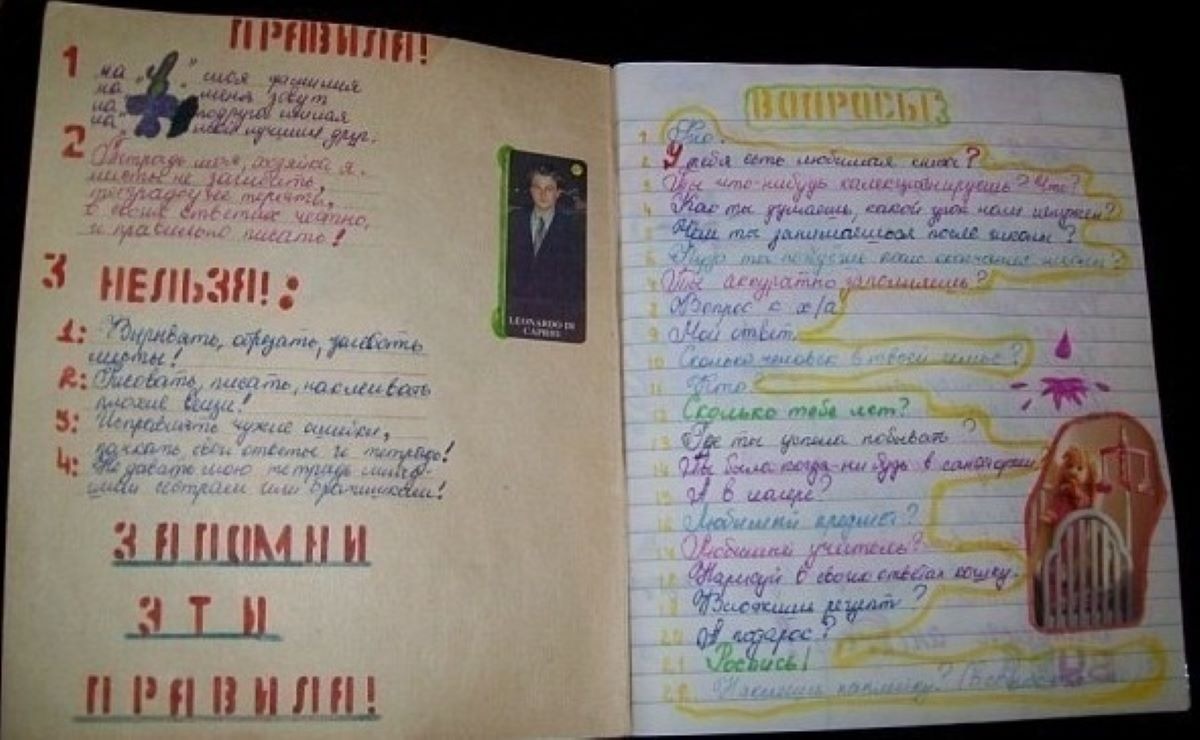 ПРАВИЛА!
1 на " " моя фамилия
на меня зовут
на подруга
на" мой лучший друг.
2 Тетрадь моя, хозяйка я.
листы не загибать,
тетрадочку не терять,
в своих ответах честно,
и правильно писать!
3 НЕЛЬЗЯ!:
1: Вырывать, обрезать, загибать
листы!
2: Рисовать, писать, наклеивать
плохие вещи!
3: Исправлять чужие ошибки,
пачкать свои ответы и тетрадь!
4: Не давать мою тетрадь
сестрам или братишкам!
ЗАПОМНИ
ЭТИ
ПРАВИЛА!
LEONARDO DI
CAPRIO
ВОПРОСЫ:
1.
2. У тебя есть любимая книга?
3. Ты что-нибудь калекцианируешь? Что?
4. Как ты думаешь, какой урок нам не нужен?
5. Чем ты занимаешься после школы?
6. Куда ты пойдёшь после окончания школы?
7. Ты аккуратно заполняешь?
8. Вопрос с х/а
9. Мой ответ.
10. Сколько человек в твоей семье?
11. Кто
12. Сколько тебе лет?
13. Где ты успела побывать?
14. Ты была когда-нибудь в санатории?
15. А в лагере?
16. Любимый предмет?
17. Любимый учитель?
18. Нарисуй в своих ответах кошку.
19. рецепт?
20. А подарок?
21. Роспись!
22. наклейку?